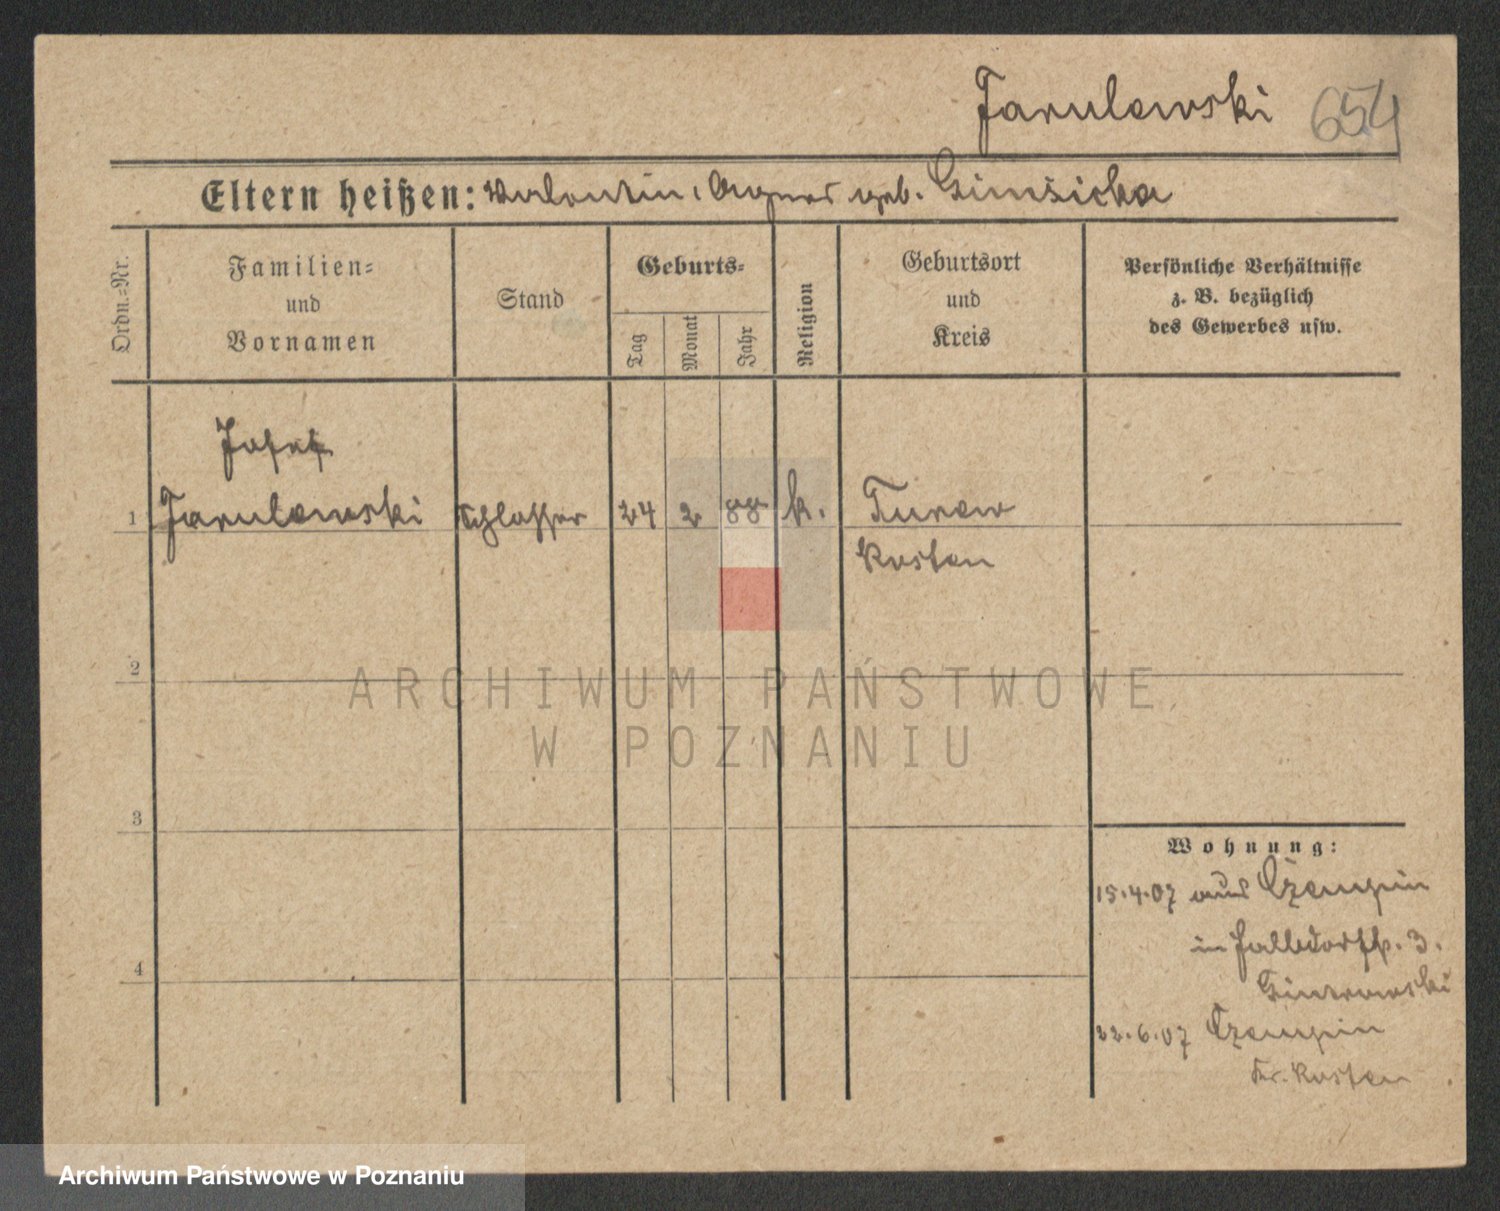 Jarulewski 654
Eltern heißen: Valentin, Agnes geb. Gimzicka
Ordn.-Nr.
Familien- und Vornamen
Stand
Geburts-
Tag
Monat
Jahr
Religion
Geburtsort und Kreis
Persönliche Verhältnisse
z. B. bezüglich
des Gewerbes usw.
Josef
1 Jarulewski Schlosser 24 2 88 k. Turew
Kosten
2
3
4
Wohnung:
15.4.07 aus Czempin
in 3.
22.6.07 Czempin
Kr. Kosten
ARCHIWUM PAŃSTWOWE
W POZNANIU
Archiwum Państwowe w Poznaniu